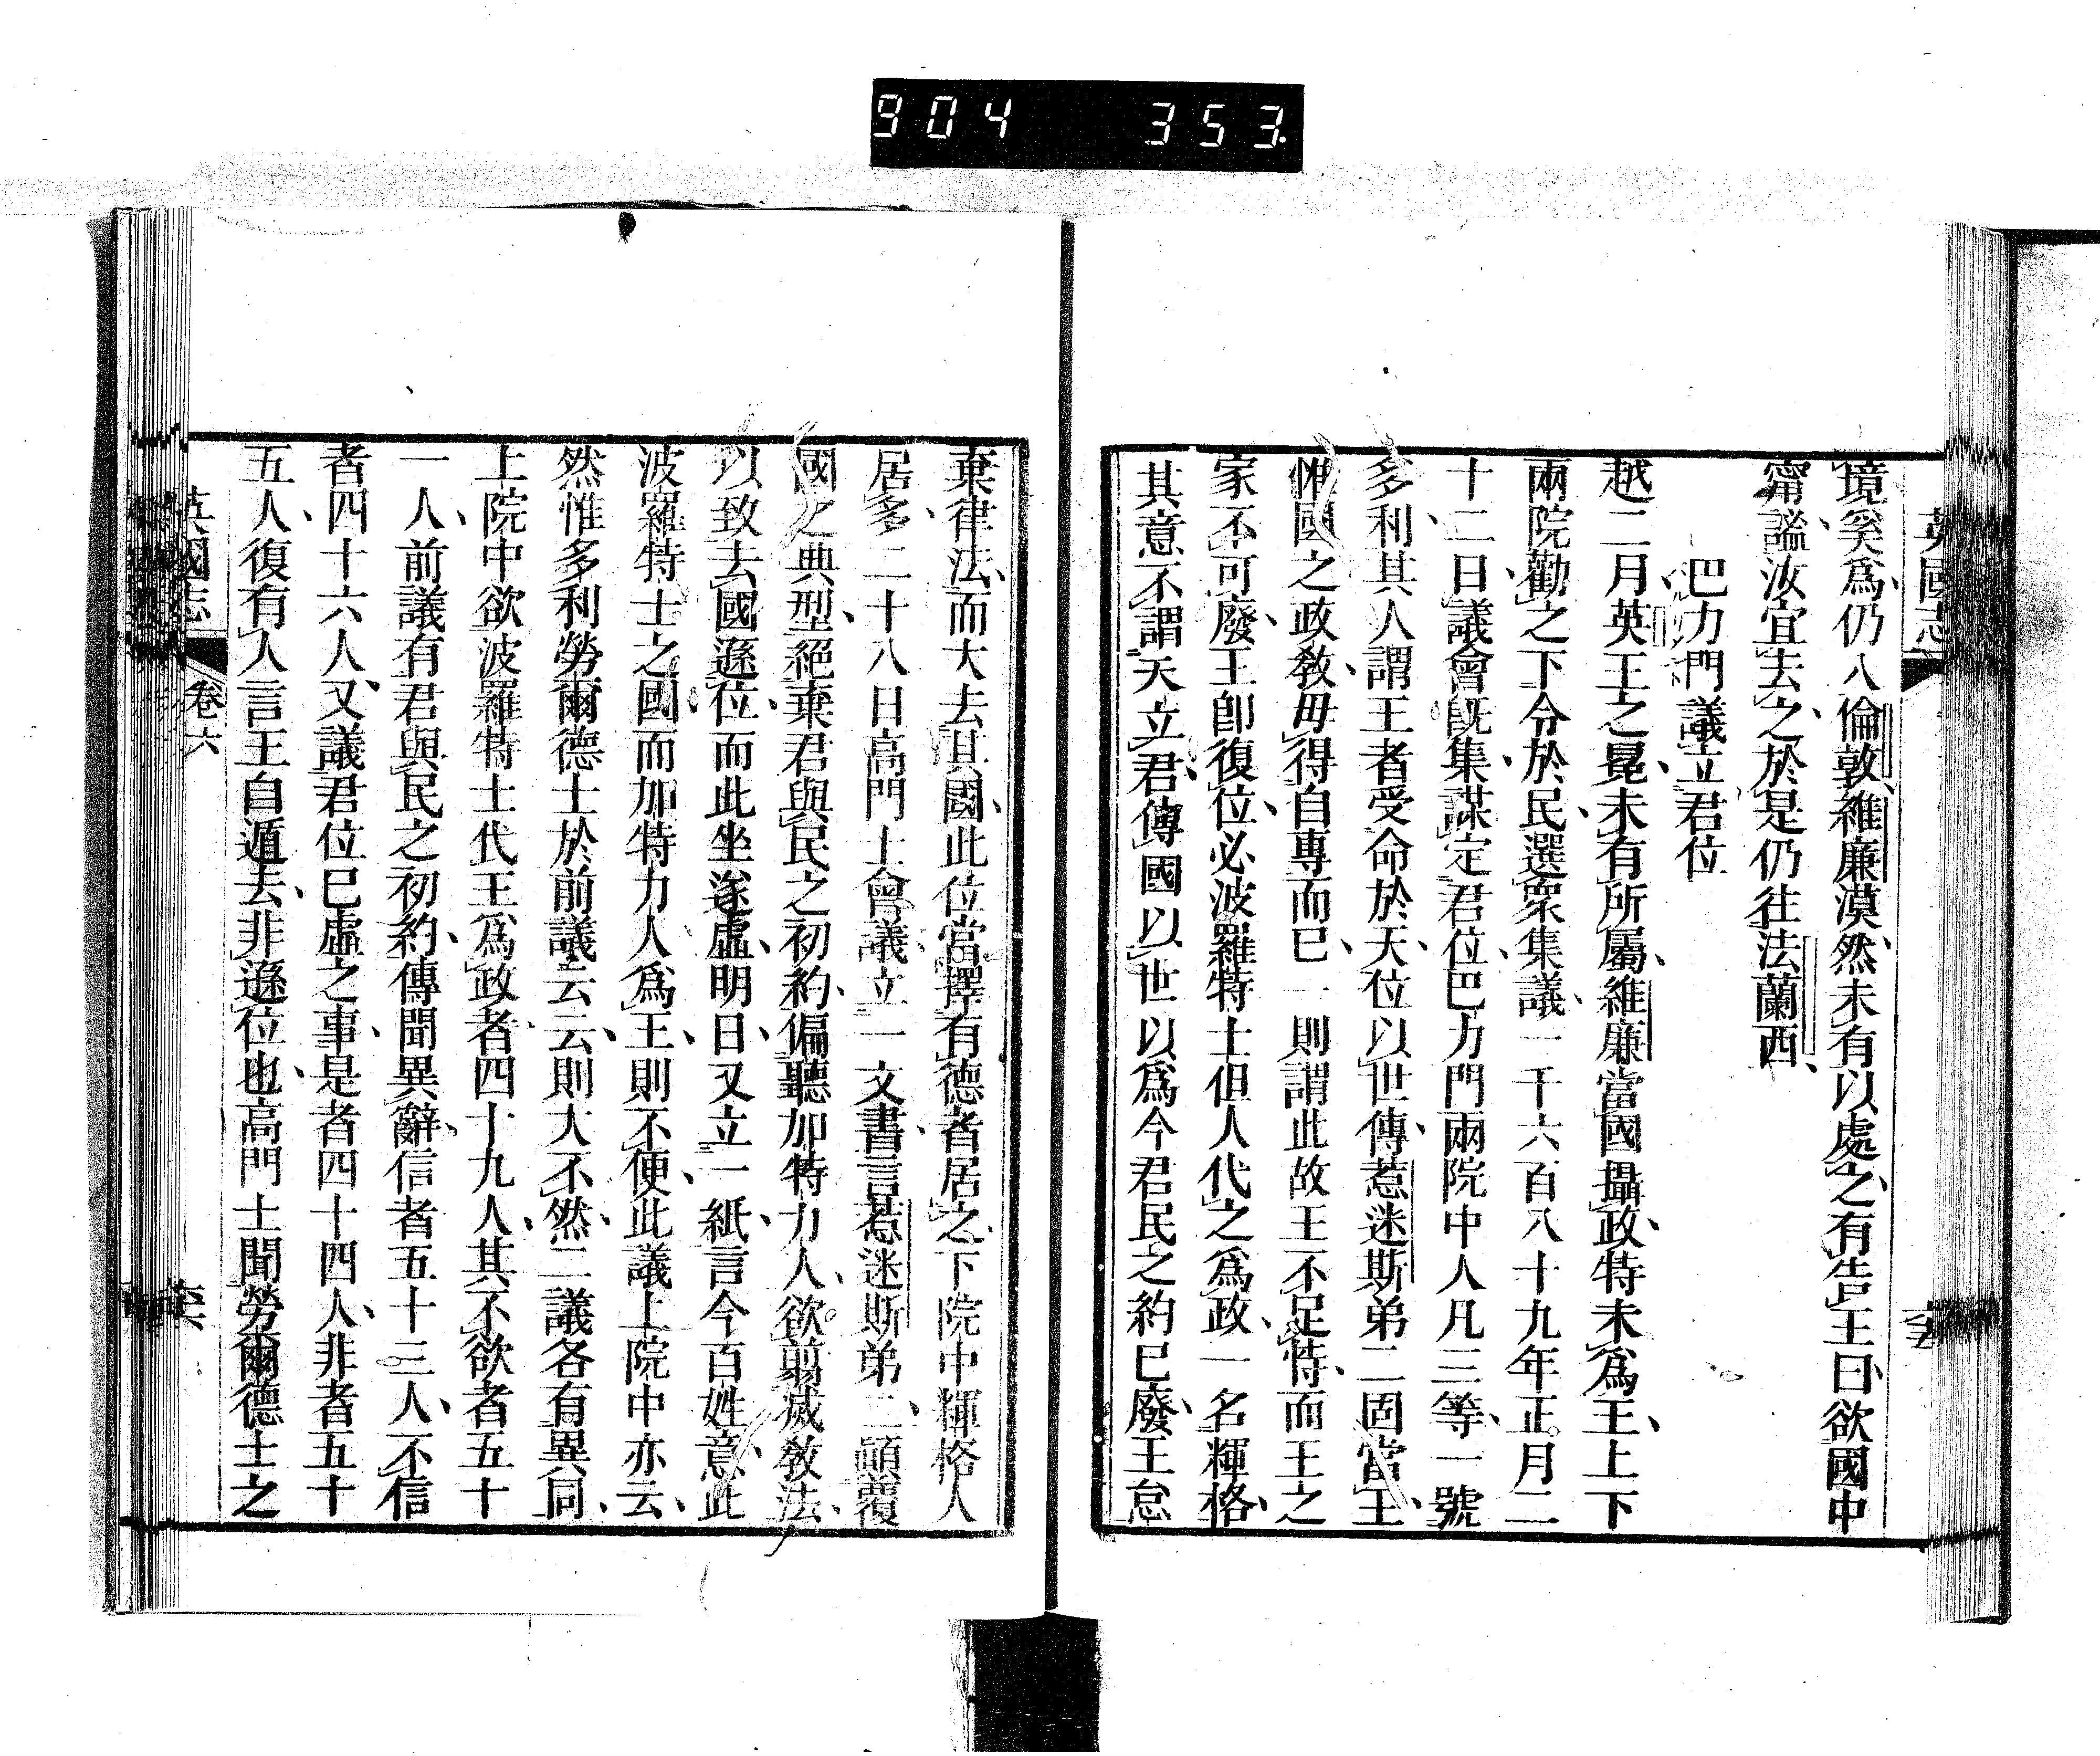 904 353
英國志
境奚爲仍入倫敦維廉漠然未有以處之有告王曰欲國中
甯謐汝宜去之於是仍往法蘭西
巴力門議立君位
越二月英王之冕未有所屬維廉當國攝政特未爲王上下
兩院勸之下令於民選衆集議一千六百八十九年正月二
十二日議會旣集謀定君位巴力門兩院中人凡三等一號
多利其人謂王者受命於天位以世傳惹迷斯弟二固當王
惟國之政敎毋得自專而已一則謂此故王不足恃而王之
家不可廢王卽復位必波羅特士但人代之爲政一名輝格
其意不謂天立君傳國以世以爲今君民之約已廢王怠
棄律法而大去其國此位當擇有德者居之下院中輝格人
居多二十八日高門士會議立一文書言惹迷斯弟二顚覆
國之典型絕棄君與民之初約偏聽加特力人欲翦滅敎法
以致去國遜位而此坐遂虛明日又立一紙言今百姓意此
波羅特士之國而加特力人爲王則不便此議上院中亦云
然惟多利勞爾德士於前議云云則大不然二議各有異同
上院中欲波羅特士代王爲政者四十九人其不欲者五十
一人前議有君與民之初約傳聞異辭信者五十三人不信
者四十六人又議君位已虛之事是者四十四人非者五十
五人復有人言王自遁去非遜位也高門士聞勞爾德士之
英國志
卷六